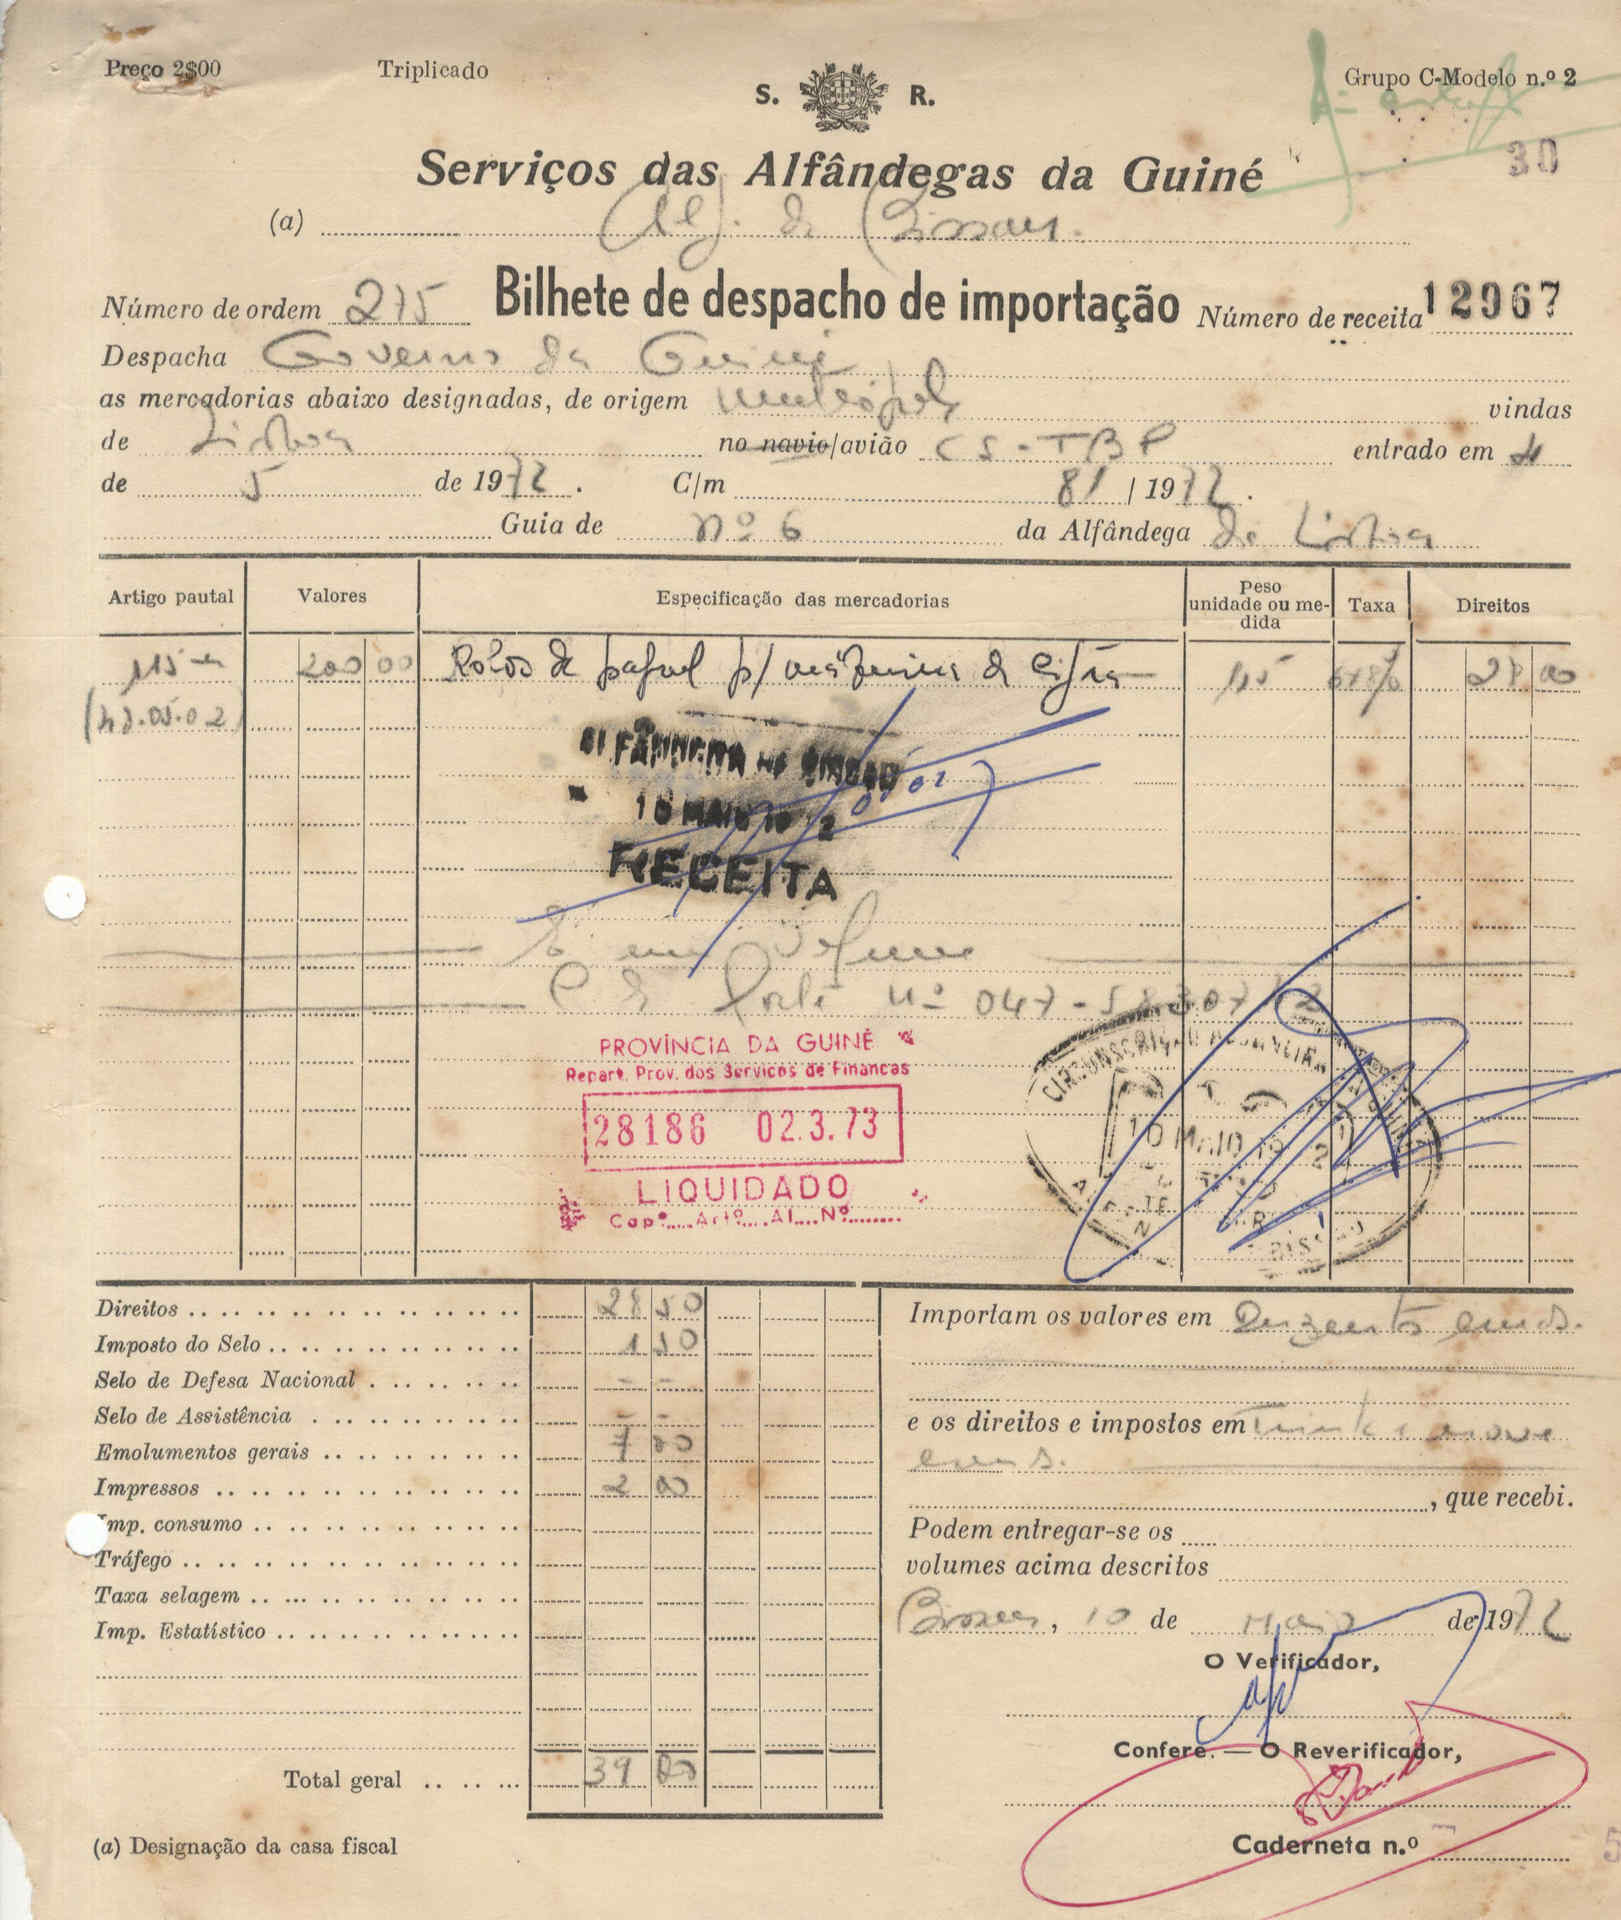 Preço 2$00 Triplicado Grupo C-Modelo n.º 2
S. R.
30
Serviços das Alfândegas da Guiné
(a) Alf. de Bissau.
Número de ordem 275 Bilhete de despacho de importação Número de receita 12967
Despacha Governo da Guiné
as mercadorias abaixo designadas, de origem vindas
de Lisboa no navio/avião CS-TBP entrado em 4
de 5 de 1972. C/m 81 / 1972.
Guia de nº 6 da Alfândega de Lisboa
Artigo pautal Valores Especificação das mercadorias Peso unidade ou medida Taxa Direitos
115 200 00 Rolos de papel p/ máquina de cifra
(48.05.02)
ALFANDEGA DE BISSAU
10 MAIO 1972
RECEITA
É um volume
C. de Porte nº 047-
PROVÍNCIA DA GUINÉ
Repart. Prov. dos Serviços de Finanças
28186 02.3.73
LIQUIDADO
Capº.... Artº.... Al.... Nº........
10 MAIO 19 2
Direitos 28 50
Imposto do Selo 1 50
Selo de Defesa Nacional - -
Selo de Assistência - -
Emolumentos gerais 7 00
Impressos 2 00
Imp. consumo
Tráfego
Taxa selagem
Imp. Estatístico
Total geral 39 00
(a) Designação da casa fiscal
Importam os valores em Duzentos escuds.
e os direitos e impostos em Trinta e nove
escuds.
, que recebi.
Podem entregar-se os
volumes acima descritos
Bissau, 10 de Maio de 1972
O Verificador,
Confere. — O Reverificador,
Caderneta n.º
5